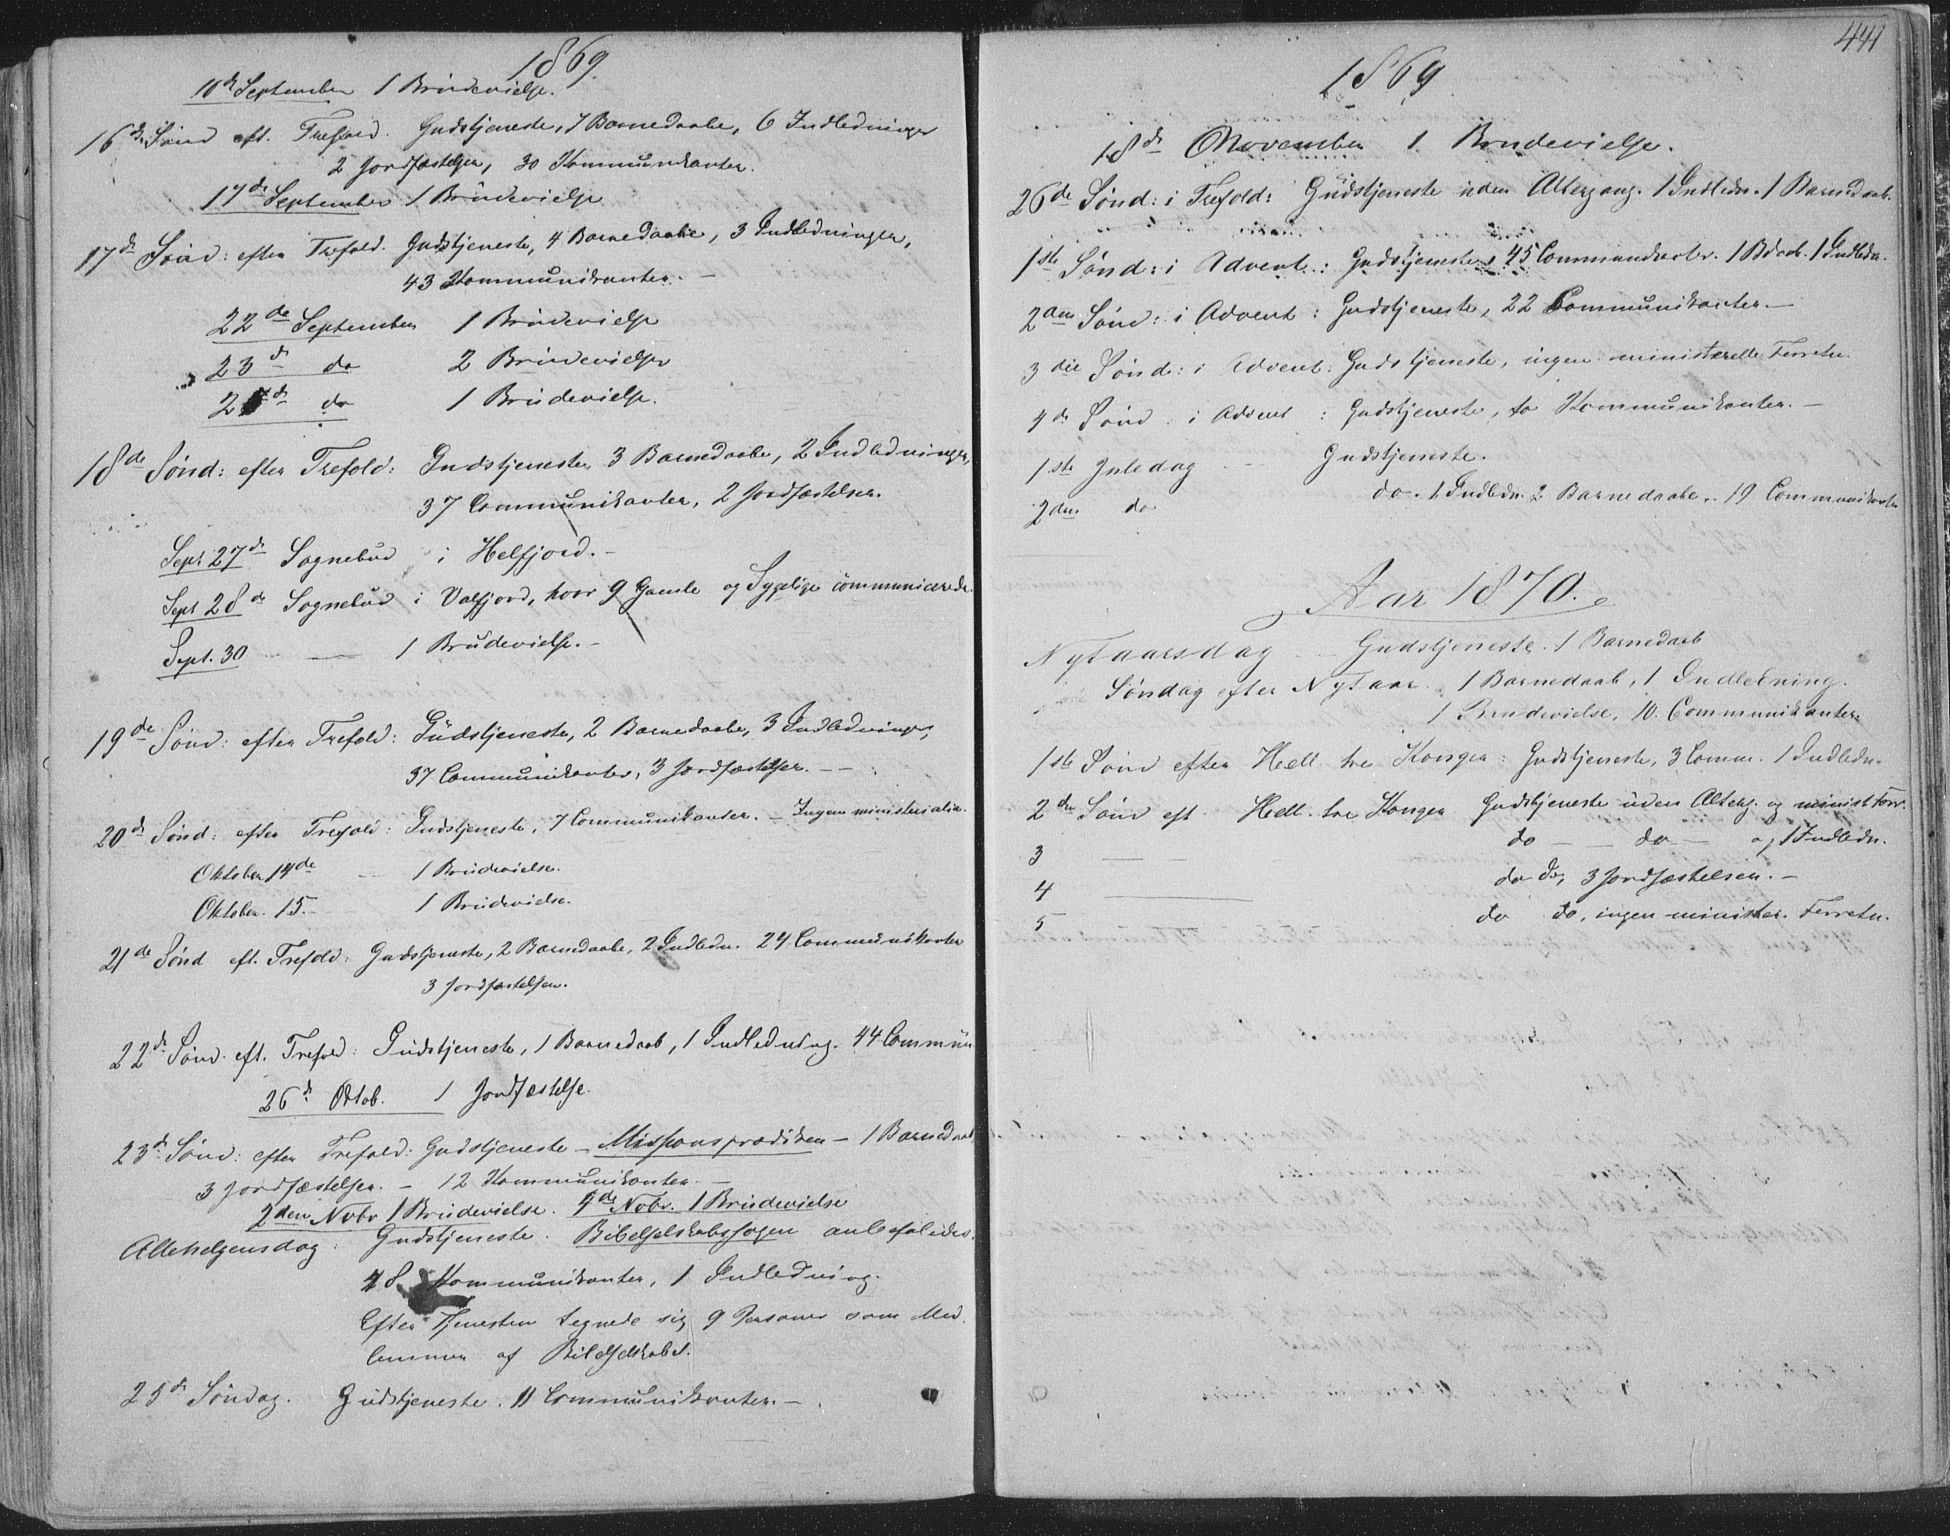 1869.
10de September 1 Brudevielse.
16de Sønd eft. Trefold. Gudstjeneste, 7 Barnedaabe, 6 Indledninger
2 Jordfæstelser, 30 Kommunikanter.
17de September 1 Brudevielse
17de Sønd: efter Trefold. Gudstjeneste, 4 Barnedaabe, 3 Indledninger,
43 Kommunikanter. –
22de September 1 Brudevielse
23de do 2 Brudevielser
2 de do 1 Brudevielse.
18de Sønd: efter Trefold: Gudstjeneste, 3 Barnedaabe, 2 Indledninger,
37 Communikanter, 2 Jordfæstelser.
Sept 27de Sognebud i Helfjord. –
Sept 28de Sognebud i Valfjord, hvor 9 Gamle og Sygelige communicerede.
Sept. 30 — 1 Brudevielse. –
19de Sønd: efter Trefold: Gudstjeneste, 2 Barnedaabe, 3 Indledninger,
37 Communikanter, 3 Jordfæstelser. – –
20de Sønd: efter Trefold: Gudstjeneste, 7 Communikanter. – Ingen ministerialia.
Oktober 14de – 1 Brudevielse.
Oktober. 15. – 1 Brudevielse.
21de Sønd eft. Trefold: Gudstjeneste, 2 Barnedaabe, 2 Indledn. 24 Communikanter
3 Jordfæstelser.
22de Sønd. eft. Trefold: Gudstjeneste, 1 Barnedaab, 1 Indledning. 44 Commun
26de Oktob. 1 Jordfæstelse.
23de Sønd: efter Trefold: Gudstjeneste – Missionsprædiken – 1 Barnedaab
3 Jordfæstelser. – 12 Kommunikanter. –
2den Novbr 1 Brudevielse. 4de Novbr. 1 Brudevielse
Allehelgensdag: Gudstjeneste. Bibelselskabssagen anbefaledes.
48 Kommunikanter, 1 Indledning.
Efter Tjenesten tegnede sig 9 Personer som Med
lemmer af Bibelselskabet.
25de Søndag. Gudstjeneste. 11 Communikanter. –
441
1869
18de November 1 Brudevielse.
26de Sønd: i Trefold: Gudstjeneste uden Altergang. 1 Indledn. 1 Barnedaab.
1ste Sønd: i Advent: Gudstjeneste, 45 Communikanter. 1 Bdaab. 1 Indledn.
2den Sønd: i Advent: Gudstjeneste, 22 Communikanter –
3die Sønd: i Advent: Gudstjeneste, ingen ministerielle Forretn.
4de Sønd: i Advent: Gudstjeneste, to Kommunikanter. –
1ste Juledag – Gudstjeneste.
2den do do. 1 Indledn. 2 Barnedaabe. 19 Communikanter
Aar 1870.
Nytaarsdag – Gudstjeneste. 1 Barnedaab
Søndag efter Nytaar. 1 Barnedaab, 1 Indledning.
1 Brudevielse, 10. Communikanter.
1ste Sønd efter Hell. tre Konger: Gudstjeneste, 3 Comm. 1 Indledn.
2den Sønd eft Hell. tre Konger Gudstjeneste uden Alterg. og minist Forr.
3 — – do – – do – og 1 Indledn.
4 — do do, 3 Jordfæstelser. –
5 do do, ingen minister. Forretn.